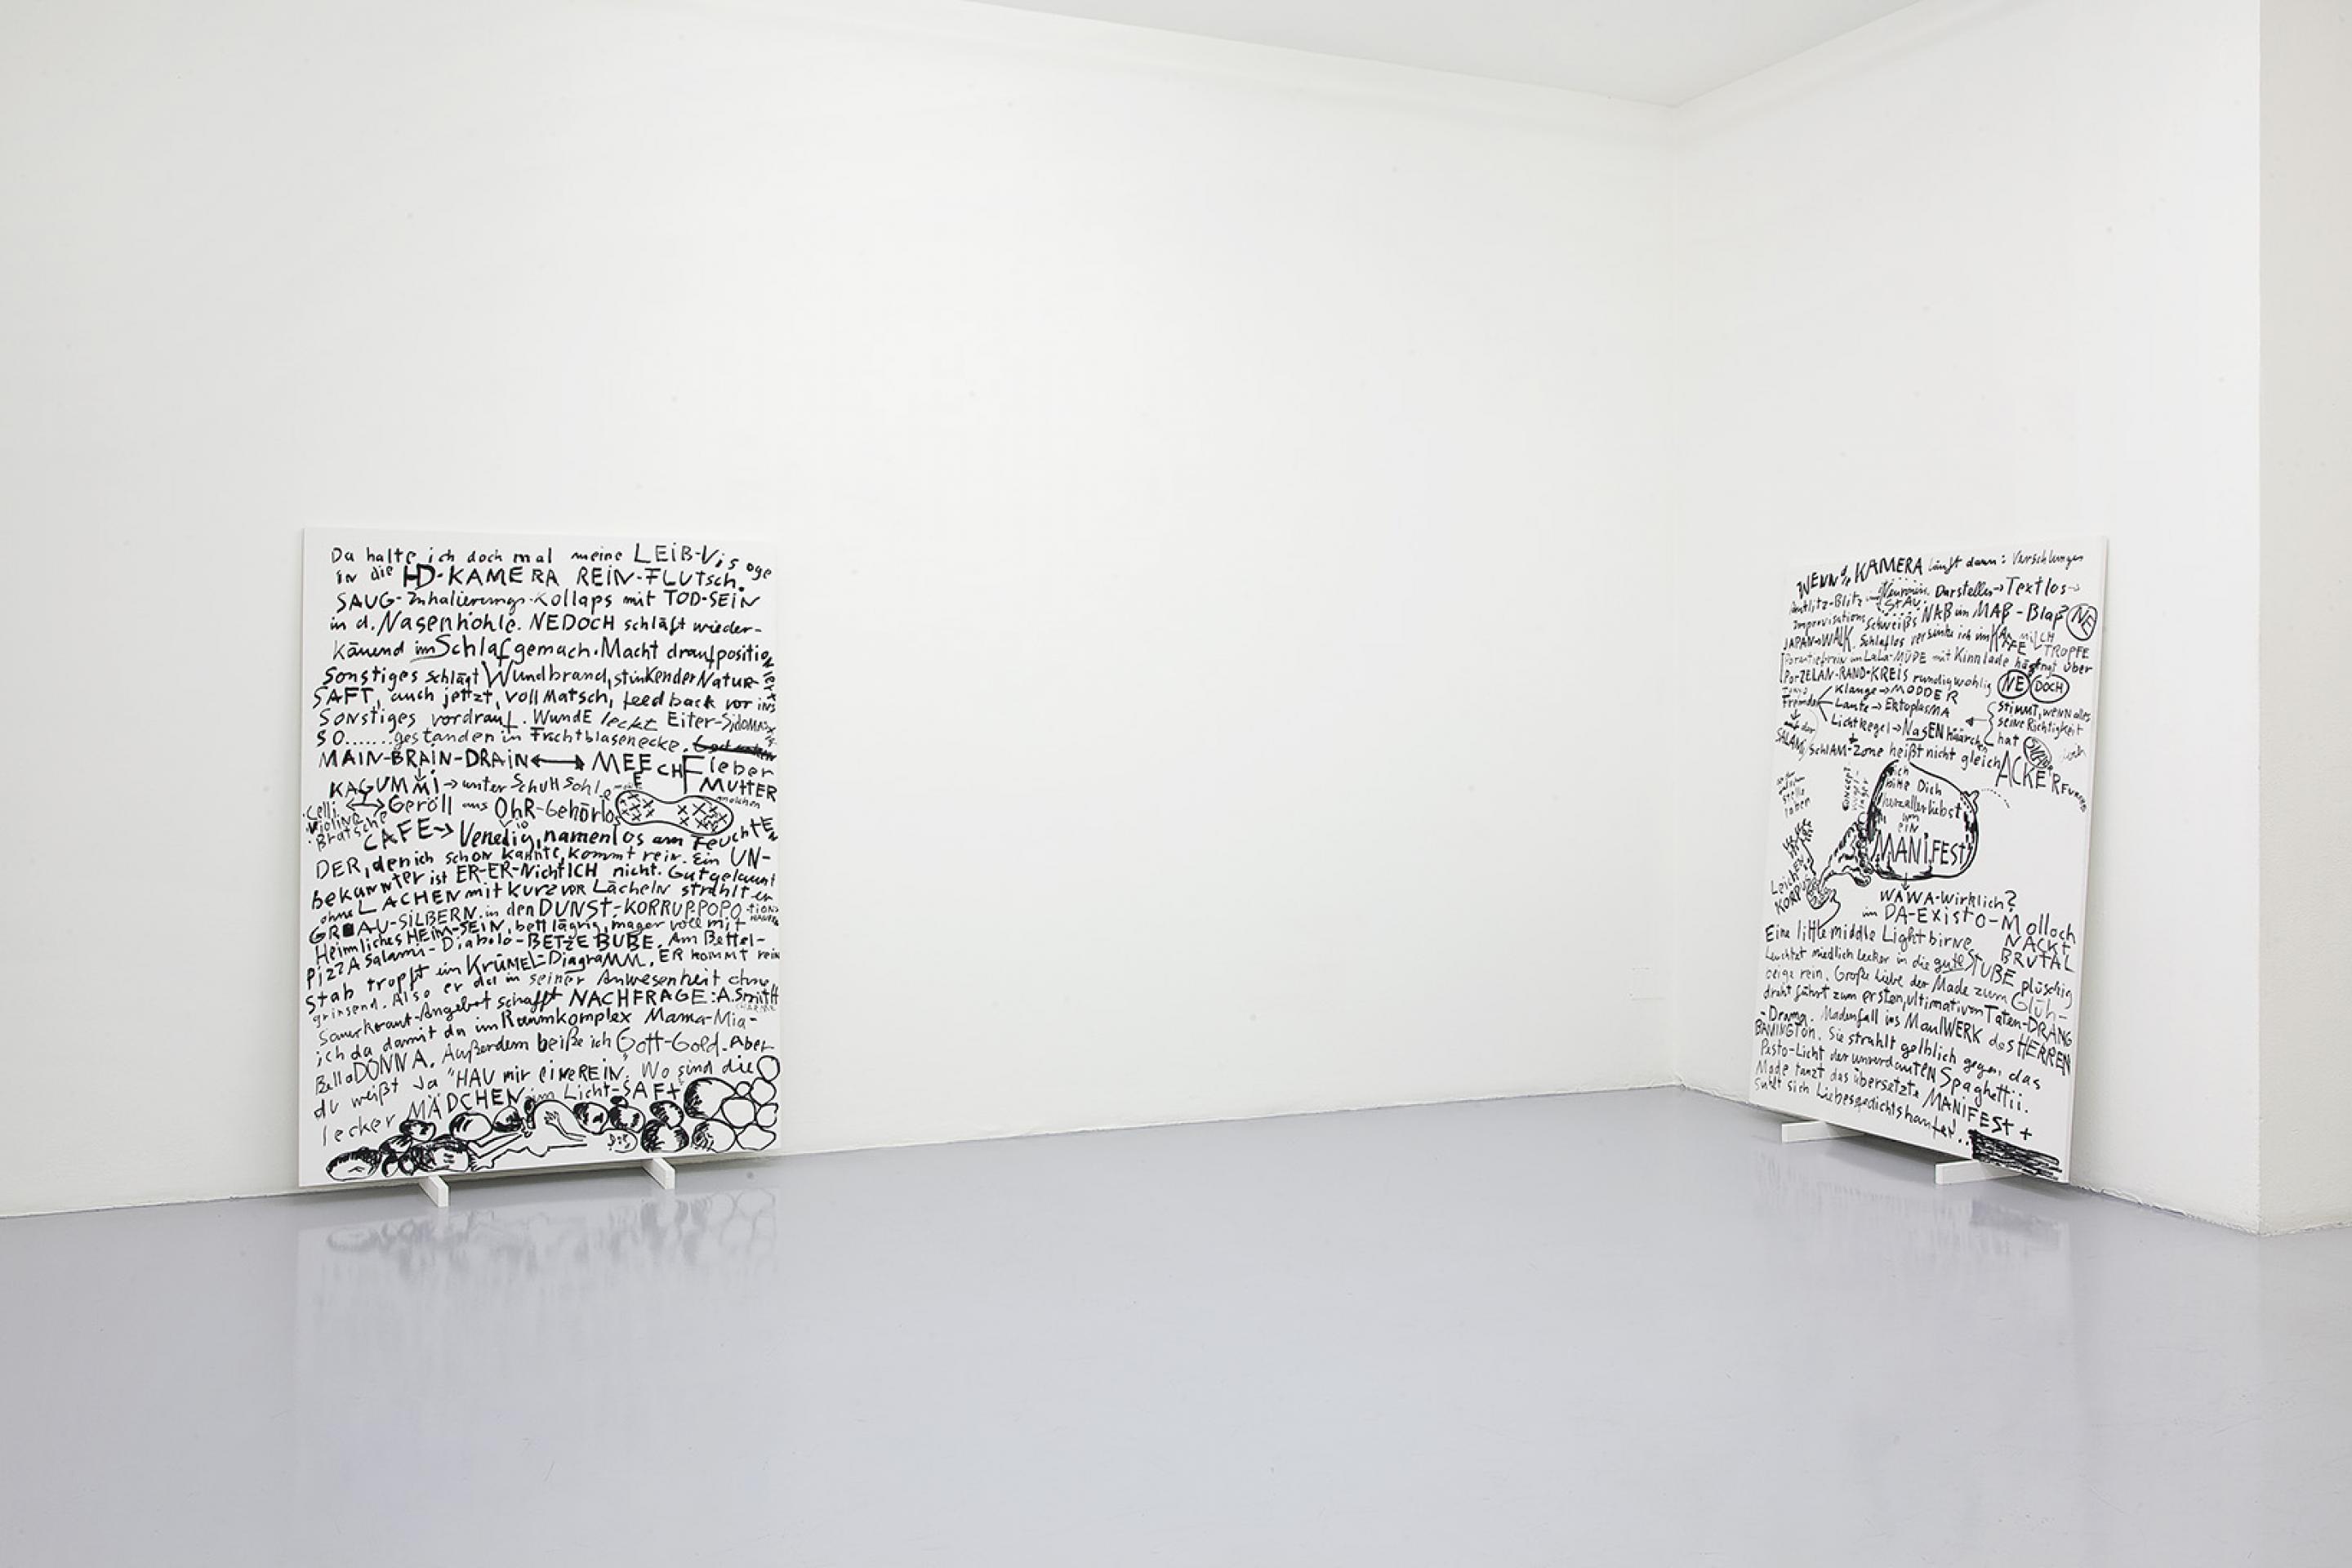 Da halte ich doch mal meine LEiB-Visage
in die HD-KAMERA REiN-FLUtsch.
SAUG-Inhalierungs-Kollaps mit TOD-SEiN
in d. Nasenhöhle. NEDOCH schläft wieder-
käuend im Schlafgemach. Macht draufposition
Sonstiges schlägt Wundbrand, stinkender Natur-
SAFT, auch jetzt, voll Matsch, feedback vor ins
Sonstiges vordrauf. WundE leckt Eiter-
SO.......gestanden in Fruchtblasenecke.
MAIN-BRAIN-DRAIN ↔ MEECH Fieber
MUTTER
KAGUMMi → unter SchuHsohle
Celli ↔ Geröll aus OhR-Gehörlos
Violine
Bratsche
CAFE → Venedig, namenlos am FeuchtEn
DER, den ich schon kannte, kommt rein. Ein UN-
bekannter ist ER-ER-NichtICH nicht. Gutgelaunt
ohne LACHEN mit kurz vor Lächeln strahlt er
GRAU-SiLBERN in den DUNST-KORRUPPOPO
Heimliches HEiM-SEiN, bettlägrig, mager voll mit
PizzA Salami-Diabolo-BETZEBUBE. Am Bettel-
stab tropft ein KRÜMEL-DiagraMM. ER kommt rein
grinsend. Also er da in seiner Anwesenheit ohne
Sauerkraut-Angebot schafft NACHFRAGE: A. Smith
ich da damit da im Raumkomplex Mama-Mia-
BellaDONNA. Außerdem beiße ich Gott-Gold. Aber
du weißt Ja "HAU mir eine REiN". Wo sind die
lecker MÄDCHEN im Licht-SAFt
WENN die KAMERA läuft dann: Verschlungen
Antlitz-Blitz Darsteller → Textlos →
StAU
Improvisations Schweißs NAß im MAß-Blaß NE
JAPAN-WALK. Schlaflos versinke ich im KAFFE MilCH TROPFE
im LaLa-MÜDE mit Kinnlade hängt über
PorZELAN-RAND-KREIS rundig wohlig NE DOCH
Klänge → MODDER
Fremde Laute → EktoplasMA
Lichtkegel → NasENhäärchen
Stimmt, wenn alles
seine Richtigkeit
hat
SALAMi SchlAM-Zone heißt nicht gleich ACKER
ich
bitte Dich
herzallerliebst
um
ein
MANiFEST
LeicHEN
KORPUS
WAWA-Wirklich?
im DA-Existo-Molloch
NACKt
BRUTAL
Eine little middle Lightbirne
Leuchtet niedlich lecker in die gute StUBE plüschig
beige rein. Große Liebe der Made zum Glüh-
draht führt zum ersten, ultimativen Taten-DRANG
-Drama. Madenfall ins MaulWERK des HERREN
BAViNGTON. Sie strahlt gelblich gegen das
Pesto-Licht der unverdauten Spaghettii.
Made tanzt das übersetzte MANiFESt +
suhlt sich Liebesgedichtshaufen...